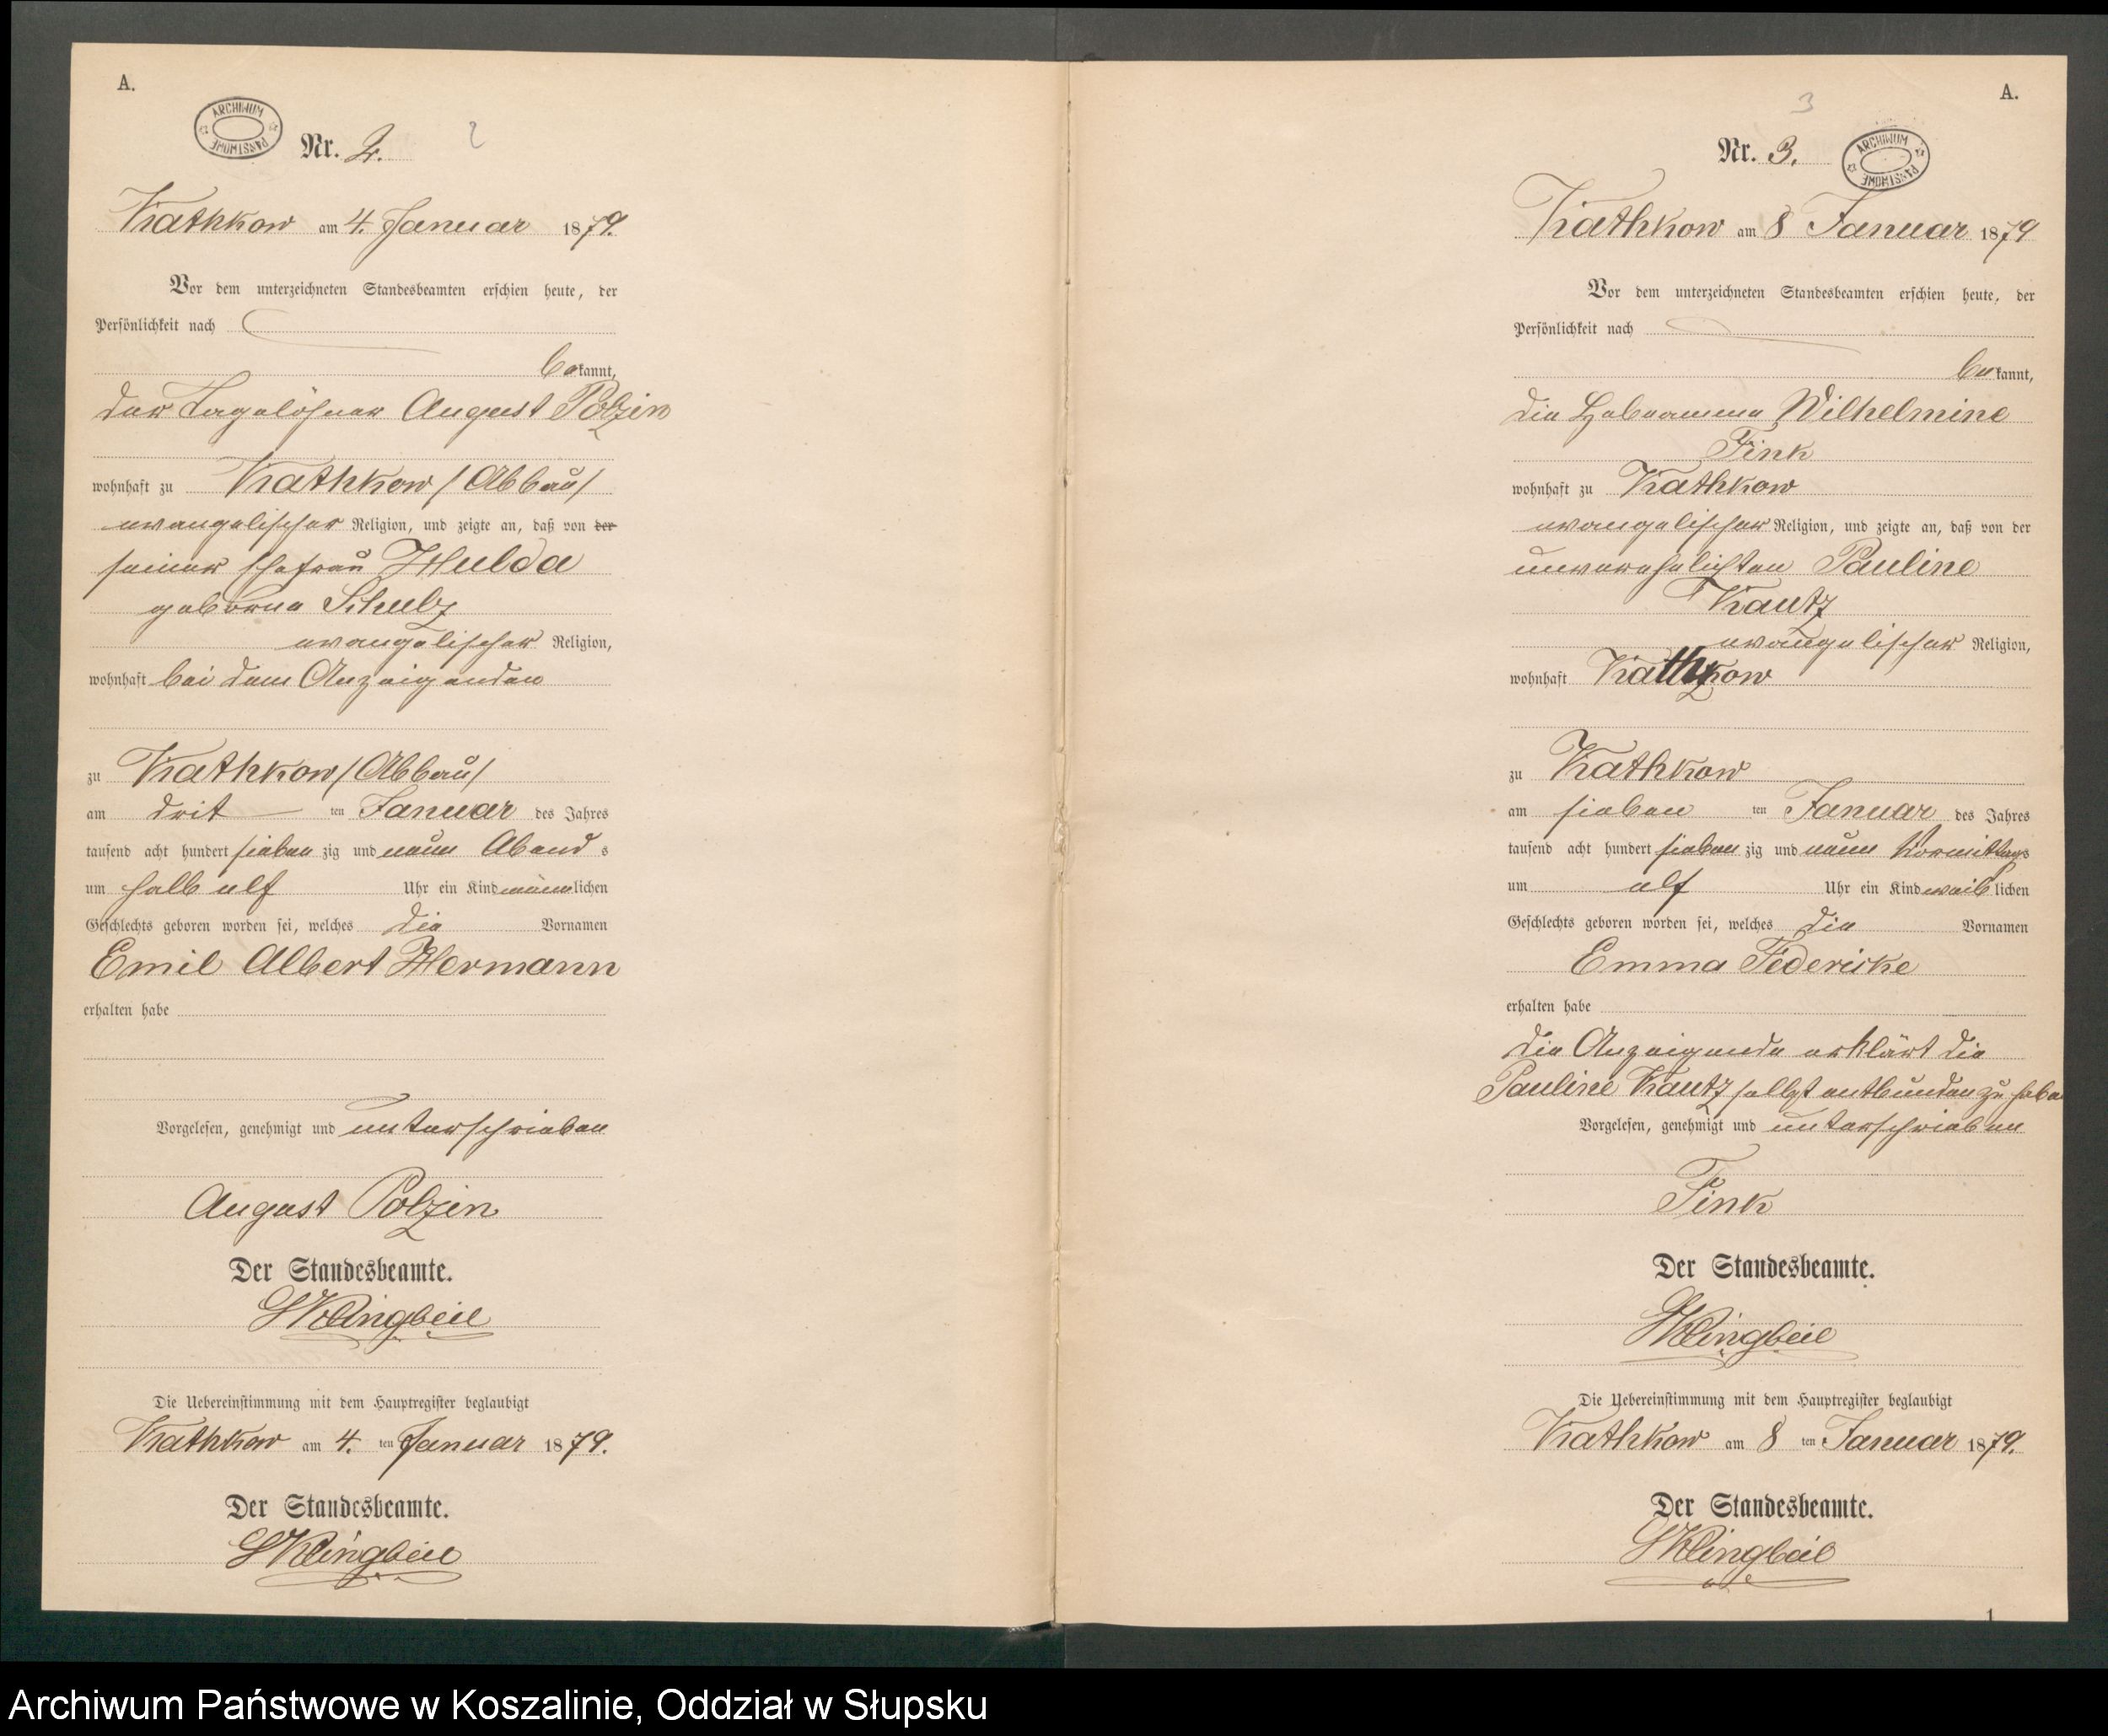 A.
ARCHIWUM PAŃSTWOWE
Nr. 2.
2
Kathkow am 4. Januar 1879.
Vor dem unterzeichneten Standesbeamten erschien heute, der
Persönlichkeit nach
bekannt,
der Tagelöhner August Polzin
wohnhaft zu Kathkow /Abbau/
evangelischer Religion, und zeigte an, daß von der
seiner Ehefrau Hulda
geborne Schulz
evangelischer Religion,
wohnhaft bei dem Anzeigenden
zu Kathkow /Abbau/
am drit ten Januar des Jahres
tausend acht hundert siebenzig und neun Abends
um halb elf Uhr ein Kind männlichen
Geschlechts geboren worden sei, welches die Vornamen
Emil Albert Hermann
erhalten habe
Vorgelesen, genehmigt und unterschrieben
August Polzin
Der Standesbeamte.
Klingbeil
Die Uebereinstimmung mit dem Hauptregister beglaubigt
Kathkow am 4. ten Januar 1879.
Der Standesbeamte.
Klingbeil
A.
3
Nr. 3.
ARCHIWUM PAŃSTWOWE
Kathkow am 8 Januar 1879
Vor dem unterzeichneten Standesbeamten erschien heute, der
Persönlichkeit nach
bekannt,
die Hebeamme Wilhelmine
Fink
wohnhaft zu Kathkow
evangelischer Religion, und zeigte an, daß von der
unverehelichten Pauline
Kautz
evangelischer Religion,
wohnhaft Kathkow
zu Kathkow
am sieben ten Januar des Jahres
tausend acht hundert siebenzig und neun Vormittags
um elf Uhr ein Kind weiblichen
Geschlechts geboren worden sei, welches die Vornamen
Emma Federicke
erhalten habe
die Anzeigende erklärt die
Pauline Kautz selbst entbunden zu habe
Vorgelesen, genehmigt und unterschrieben
Fink
Der Standesbeamte.
Klingbeil
Die Uebereinstimmung mit dem Hauptregister beglaubigt
Kathkow am 8 ten Januar 1879.
Der Standesbeamte.
Klingbeil
1
Archiwum Państwowe w Koszalinie, Oddział w Słupsku